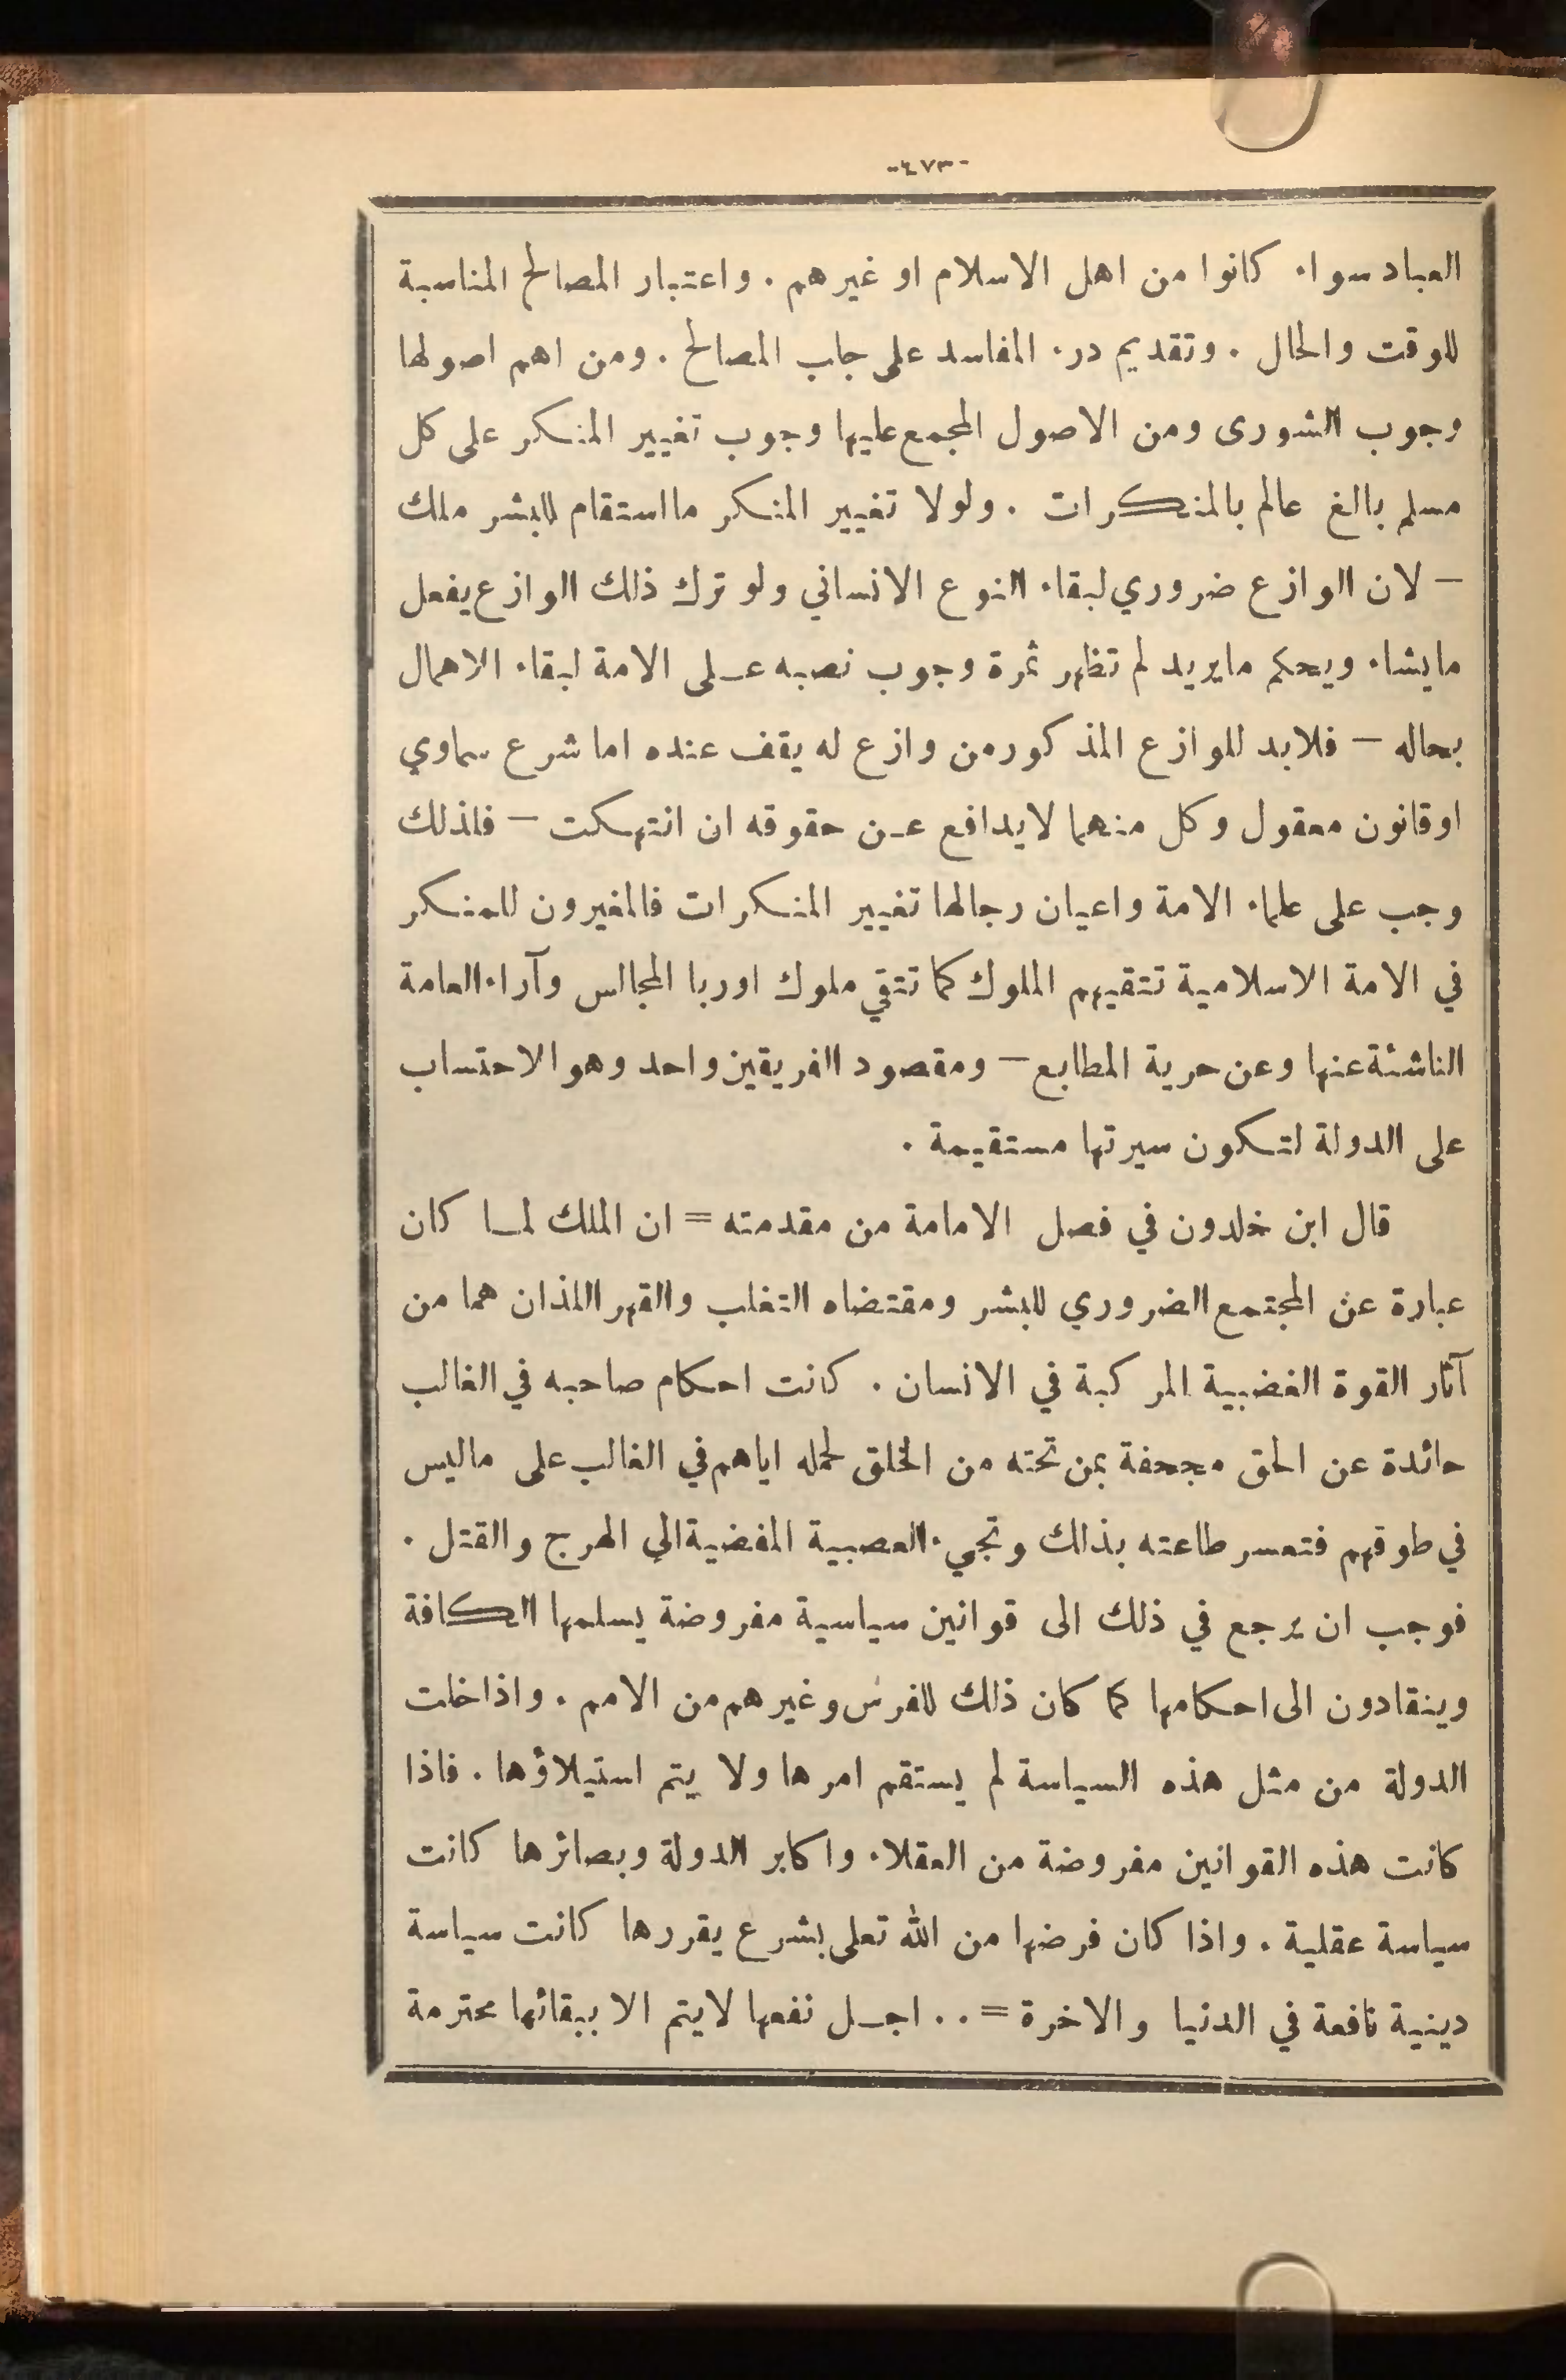 -٤٧٣-
العباد سواء كانوا من اهل الاسلام او غيرهم . واعتبار المصالح المناسبة
للوقت والحال . وتقديم درء المفاسد على جلب المصالح . ومن اهم اصولها
وجوب الشورى ومن الاصول المجمع عليها وجوب تغيير المنكر على كل
مسلم بالغ عالم بالمنكرات . ولولا تغيير المنكر ما استقام للبشر ملك
– لان الوازع ضروري لبقاء النوع الانساني ولو ترك ذلك الوازع يفعل
مايشاء ويحكم مايريد لم تظهر ثمرة وجوب نصبه على الامة لبقاء الاهمال
بحاله – فلابد للوازع المذكور من وازع له يقف عنده اما شرع سماوي
اوقانون معقول وكل منهما لايدافع عن حقوقه ان انتهكت – فلذلك
وجب على علماء الامة واعيان رجالها تغيير المنكرات فالمغيرون للمنكر
في الامة الاسلامية تتقيهم الملوك كما تتقي ملوك اوربا المجالس وآراء العامة
الناشئة عنها وعن حرية المطابع – ومقصود الفريقين واحد وهو الاحتساب
على الدولة لتكون سيرتها مستقيمة .
قال ابن خلدون في فصل الامامة من مقدمته = ان الملك لما كان
عبارة عن المجتمع الضروري للبشر ومقتضاه التغلب والقهر اللذان هما من
آثار القوة الغضبية المركبة في الانسان . كانت احكام صاحبه في الغالب
حائدة عن الحق مجحفة بمن تحته من الخلق لحمله اياهم في الغالب على ماليس
في طوقهم فتعسر طاعته بذلك وتجيء العصبية المفضية الي الهرج والقتل .
فوجب ان يرجع في ذلك الى قوانين سياسية مفروضة يسلمها الكافة
وينقادون الى احكامها كما كان ذلك للفرس وغيرهم من الامم . واذا خلت
الدولة من مثل هذه السياسة لم يستقم امرها ولا يتم استيلاؤها . فاذا
كانت هذه القوانين مفروضة من العقلاء واكابر الدولة وبصائرها كانت
سياسة عقلية . واذا كان فرضها من الله تعلى بشرع يقررها كانت سياسة
دينية نافعة في الدنيا والاخرة = . . اجل نفعها لايتم الا ببقائها محترمة